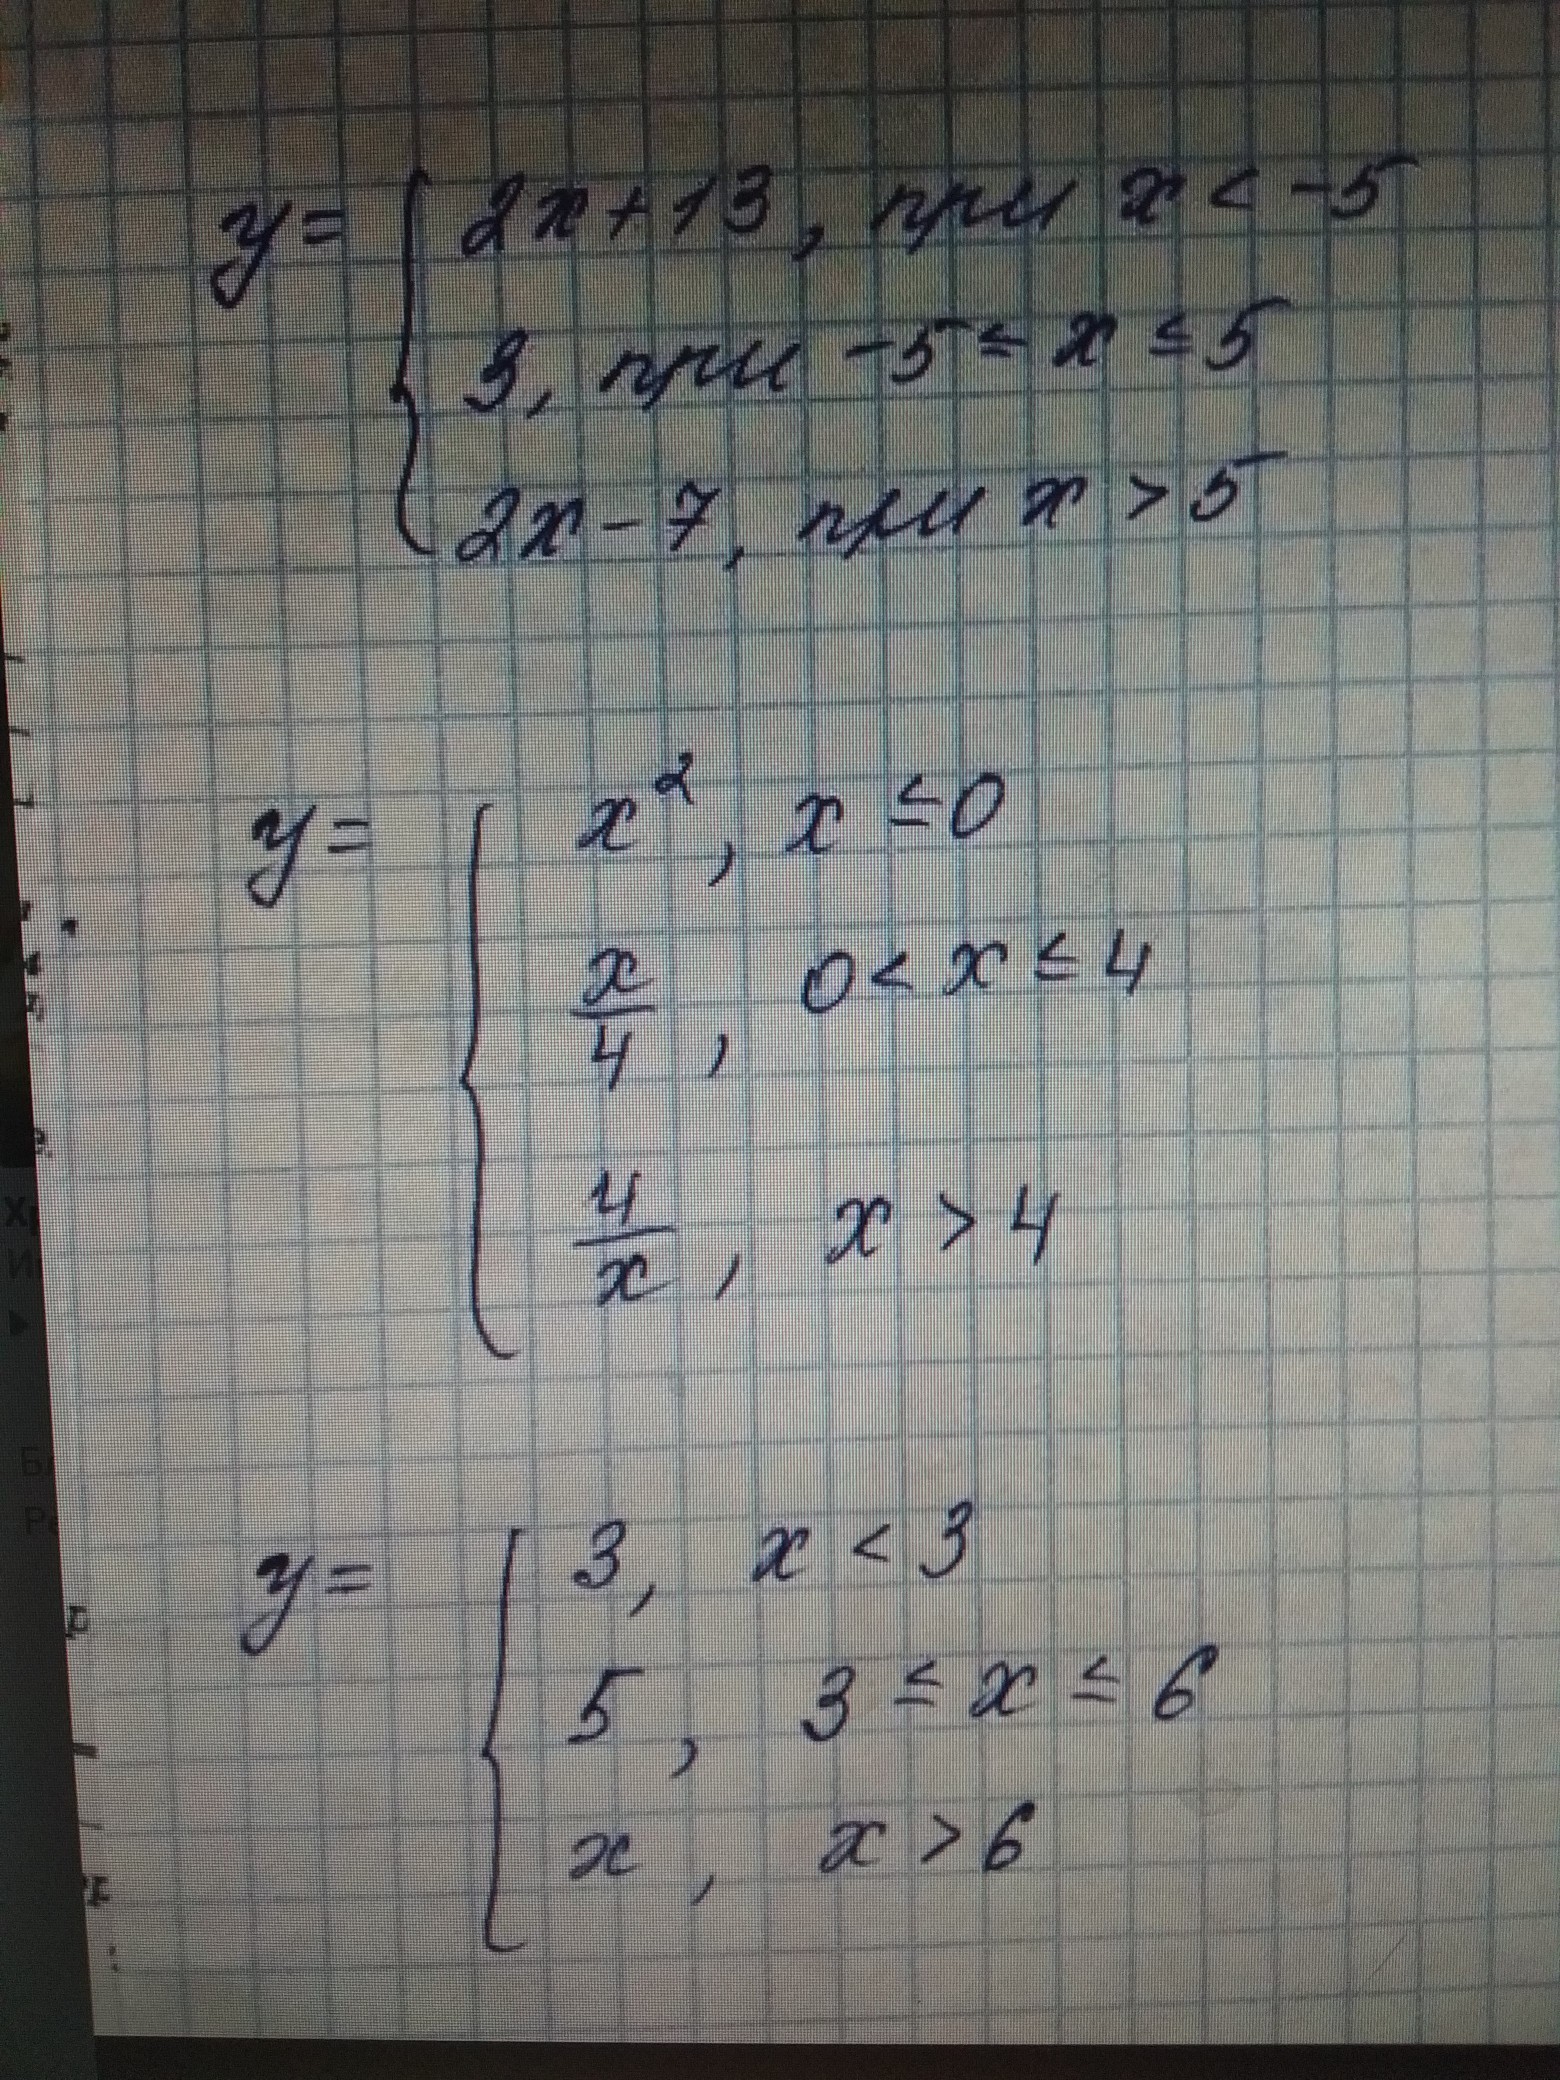 y = { 2x + 13, при x < -5
3, при -5 ≤ x ≤ 5
2x - 7, при x > 5
y = { x², x ≤ 0
x/4, 0 < x ≤ 4
4/x, x > 4
y = { 3, x < 3
5, 3 ≤ x ≤ 6
x, x > 6